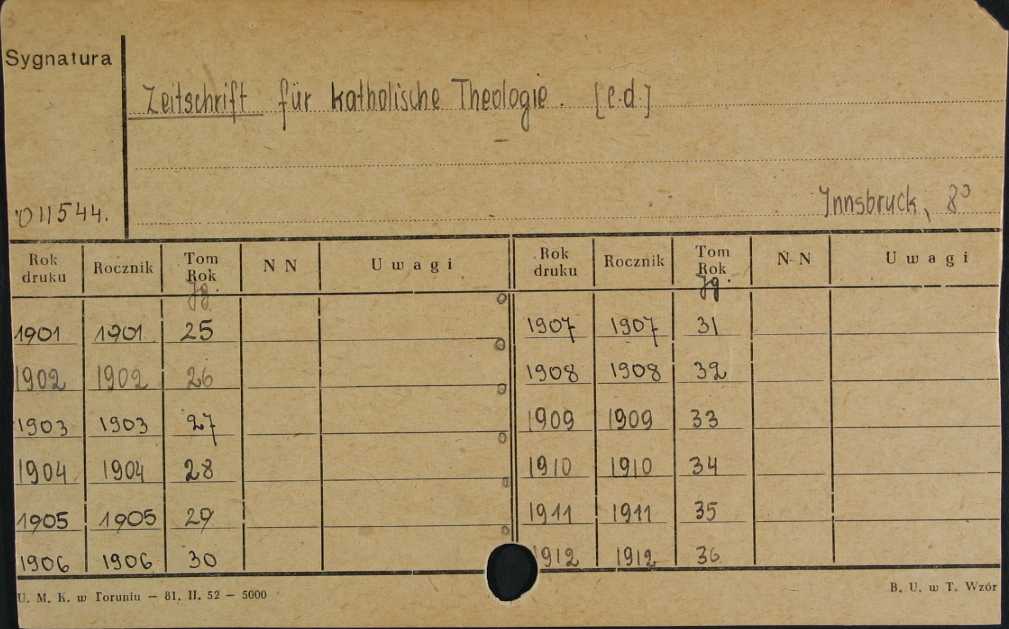 Sygnatura
Zeitschrift für katholische Theologie. [c.d.]
011544.
Innsbruck, 8°
Rok druku Rocznik Tom Rok Jg. NN Uwagi Rok druku Rocznik Tom Rok Jg. NN Uwagi
1901 1901 25 1907 1907 31
1902 1902 26 1908 1908 32
1903 1903 27 1909 1909 33
1904 1904 28 1910 1910 34
1905 1905 29 1911 1911 35
1906 1906 30 1912 1912 36
U. M. K. w Toruniu – 81. II. 52 – 5000 B. U. w T. Wzór